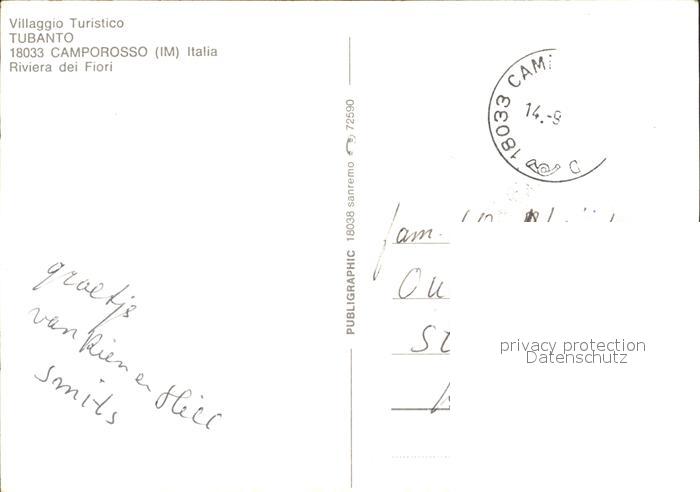 Villaggio Turistico
TUBANTO
18033 CAMPOROSSO (IM) Italia
Riviera dei Fiori
groetjs
van Rien en
smits
PUBLIGRAPHIC 18038 sanremo 72590
18033 CAM
14.-8
fam.
Ou
St
privacy protection
Datenschutz